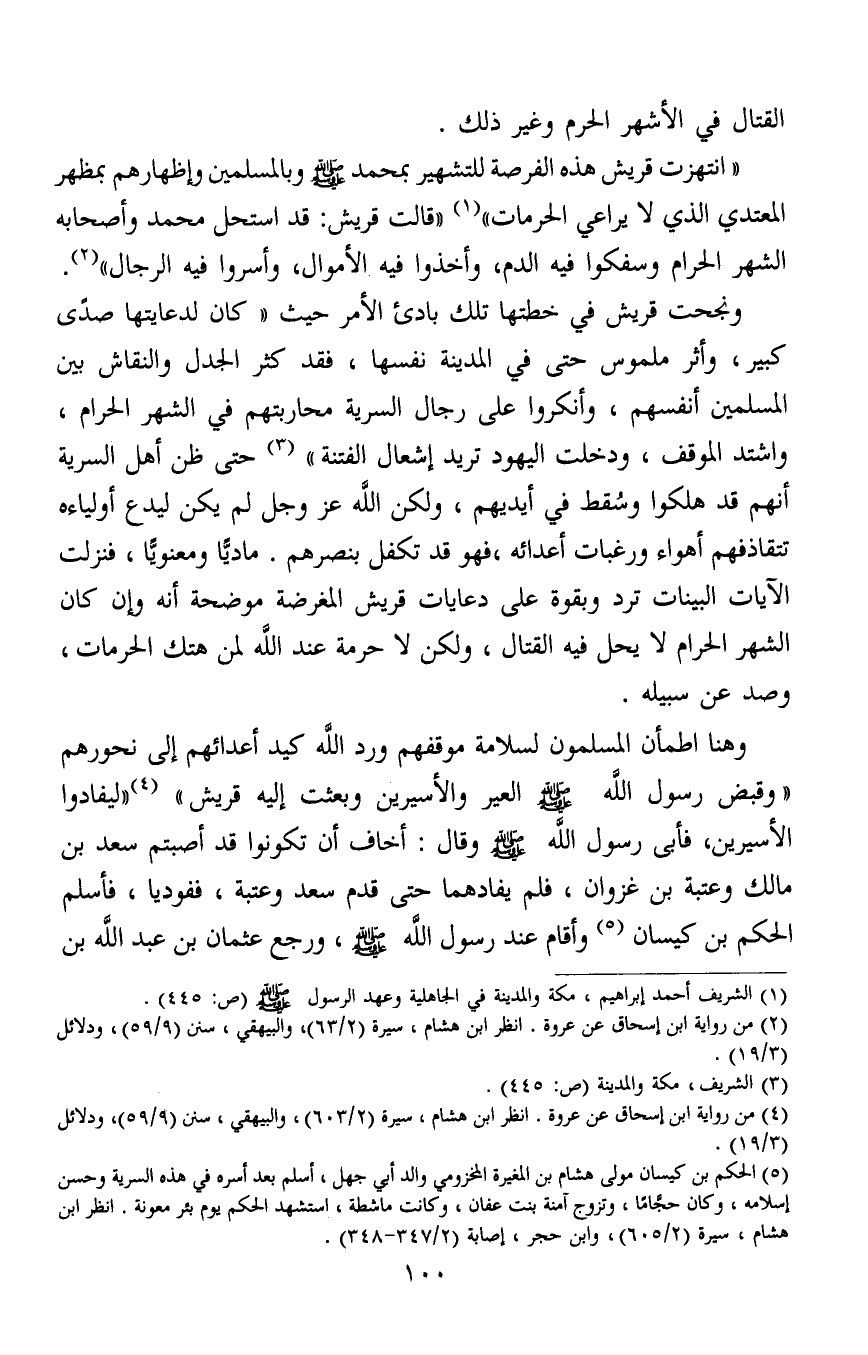 القتال في الأشهر الحرم وغير ذلك .
« انتهزت قريش هذه الفرصة للتشهير بمحمد ﷺ وبالمسلمين وإظهارهم بمظهر
المعتدي الذي لا يراعي الحرمات»(١) «قالت قريش: قد استحل محمد وأصحابه
الشهر الحرام وسفكوا فيه الدم، وأخذوا فيه الأموال، وأسروا فيه الرجال»(٢).
ونجحت قريش في خطتها تلك بادئ الأمر حيث « كان لدعايتها صدًى
كبير، وأثر ملموس حتى في المدينة نفسها ، فقد كثر الجدل والنقاش بين
المسلمين أنفسهم ، وأنكروا على رجال السرية محاربتهم في الشهر الحرام ،
واشتد الموقف ، ودخلت اليهود تريد إشعال الفتنة » (٣) حتى ظن أهل السرية
أنهم قد هلكوا وسُقط في أيديهم ، ولكن اللَّه عز وجل لم يكن ليدع أولياءه
تتقاذفهم أهواء ورغبات أعدائه ،فهو قد تكفل بنصرهم . ماديًّا ومعنويًّا ، فنزلت
الآيات البينات ترد وبقوة على دعايات قريش المغرضة موضحة أنه وإن كان
الشهر الحرام لا يحل فيه القتال ، ولكن لا حرمة عند اللَّه لمن هتك الحرمات ،
وصد عن سبيله .
وهنا اطمأن المسلمون لسلامة موقفهم ورد اللَّه كيد أعدائهم إلى نحورهم
« وقبض رسول اللَّه ﷺ العير والأسيرين وبعثت إليه قريش» (٤)«ليفادوا
الأسيرين، فأبى رسول اللَّه ﷺ وقال : أخاف أن تكونوا قد أصبتم سعد بن
مالك وعتبة بن غزوان ، فلم يفادهما حتى قدم سعد وعتبة ، ففوديا ، فأسلم
الحكم بن كيسان (٥) وأقام عند رسول اللَّه ﷺ ، ورجع عثمان بن عبد اللَّه بن
(١) الشريف أحمد إبراهيم ، مكة والمدينة في الجاهلية وعهد الرسول ﷺ (ص: ٤٤٥) .
(٢) من رواية ابن إسحاق عن عروة . انظر ابن هشام ، سيرة (٦٣/٢)، والبيهقي ، سنن (٥٩/٩) ، ودلائل
(١٩/٣) .
(٣) الشريف، مكة والمدينة (ص: ٤٤٥) .
(٤) من رواية ابن إسحاق عن عروة . انظر ابن هشام ، سيرة (٦٠٣/٢) ، والبيهقي ، سنن (٥٩/٩)، ودلائل
(١٩/٣) .
(٥) الحكم بن كيسان مولى هشام بن المغيرة المخزومي والد أبي جهل ، أسلم بعد أسره في هذه السرية وحسن
إسلامه ، وكان حجَّامًا ، وتزوج آمنة بنت عفان ، وكانت ماشطة ، استشهد الحكم يوم بئر معونة . انظر ابن
هشام ، سيرة (٦٠٥/٢) ، وابن حجر ، إصابة (٣٤٧/٢-٣٤٨) .
١٠٠